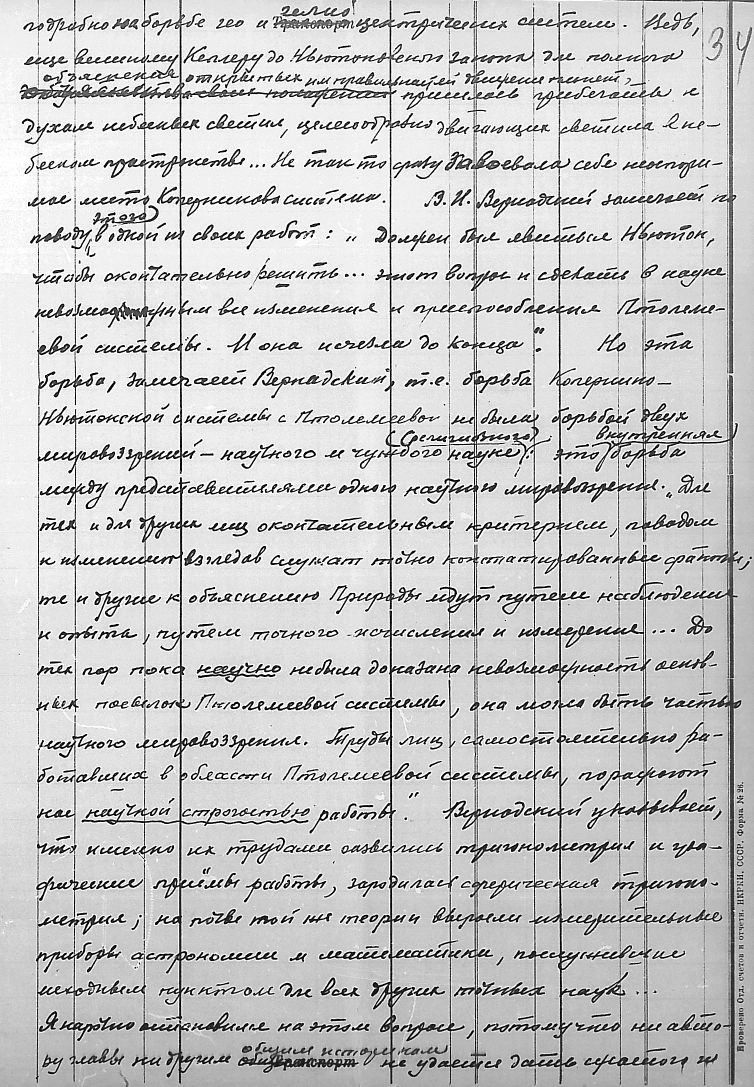 34
подробно на борьбе гео и гелио центрических систем. Ведь,
еще великому Кеплеру до Ньютоновского закона для полного
объяснения открытых им правильностей движения планет,
пришлось прибегать к
духам небесных светил, целесообразно двигающих светила в не-
бесном пространстве... Не так то сразу завоевала себе неоспори-
мое место Коперникова система. В.И. Вернадский замечает по
этому
поводу в одной из своих работ: „Должен был явиться Ньютон,
чтобы окончательно решить... этот вопрос и сделать в науке
невозможным все изменения и приспособления Птолеме-
евой системы. И она исчезла до конца". Но эта
борьба, замечает Вернадский, т.е. борьба Копернико-
Ньютонской системы с Птолемеевой не была борьбой двух
мировоззрений – научного и чуждого науке (религиозного): это внутренняя борьба
между представителями одного научного мировоззрения. „Для
тех и для других лиц окончательным критерием, поводом
к изменению взглядов служат точно констатированные факты;
те и другие к объяснению Природы идут путем наблюдения
и опыта, путем точного исчисления и измерения... До
тех пор пока научно не была доказана невозможность основ-
ных посылок Птолемеевой системы, она могла быть частью
научного мировоззрения. Труды лиц, самостоятельно ра-
ботавших в области Птолемеевой системы, поражают
нас научной строгостью работы". Вернадский указывает,
что именно их трудами развились тригонометрия и гра-
фические приёмы работы, зародилась сферическая тригоно-
метрия; на почве той же теории выросли измерительные
приборы астрономии и математики, послужившие
исходным пунктом для всех других точных наук...
Я нарочно остановился на этом вопросе, потому что ни авто-
ру главы ни другим общим историкам не удается дать простого и
Проверено Отд. счетов и отчетн. НКРКИ, СССР. Форма № 26.